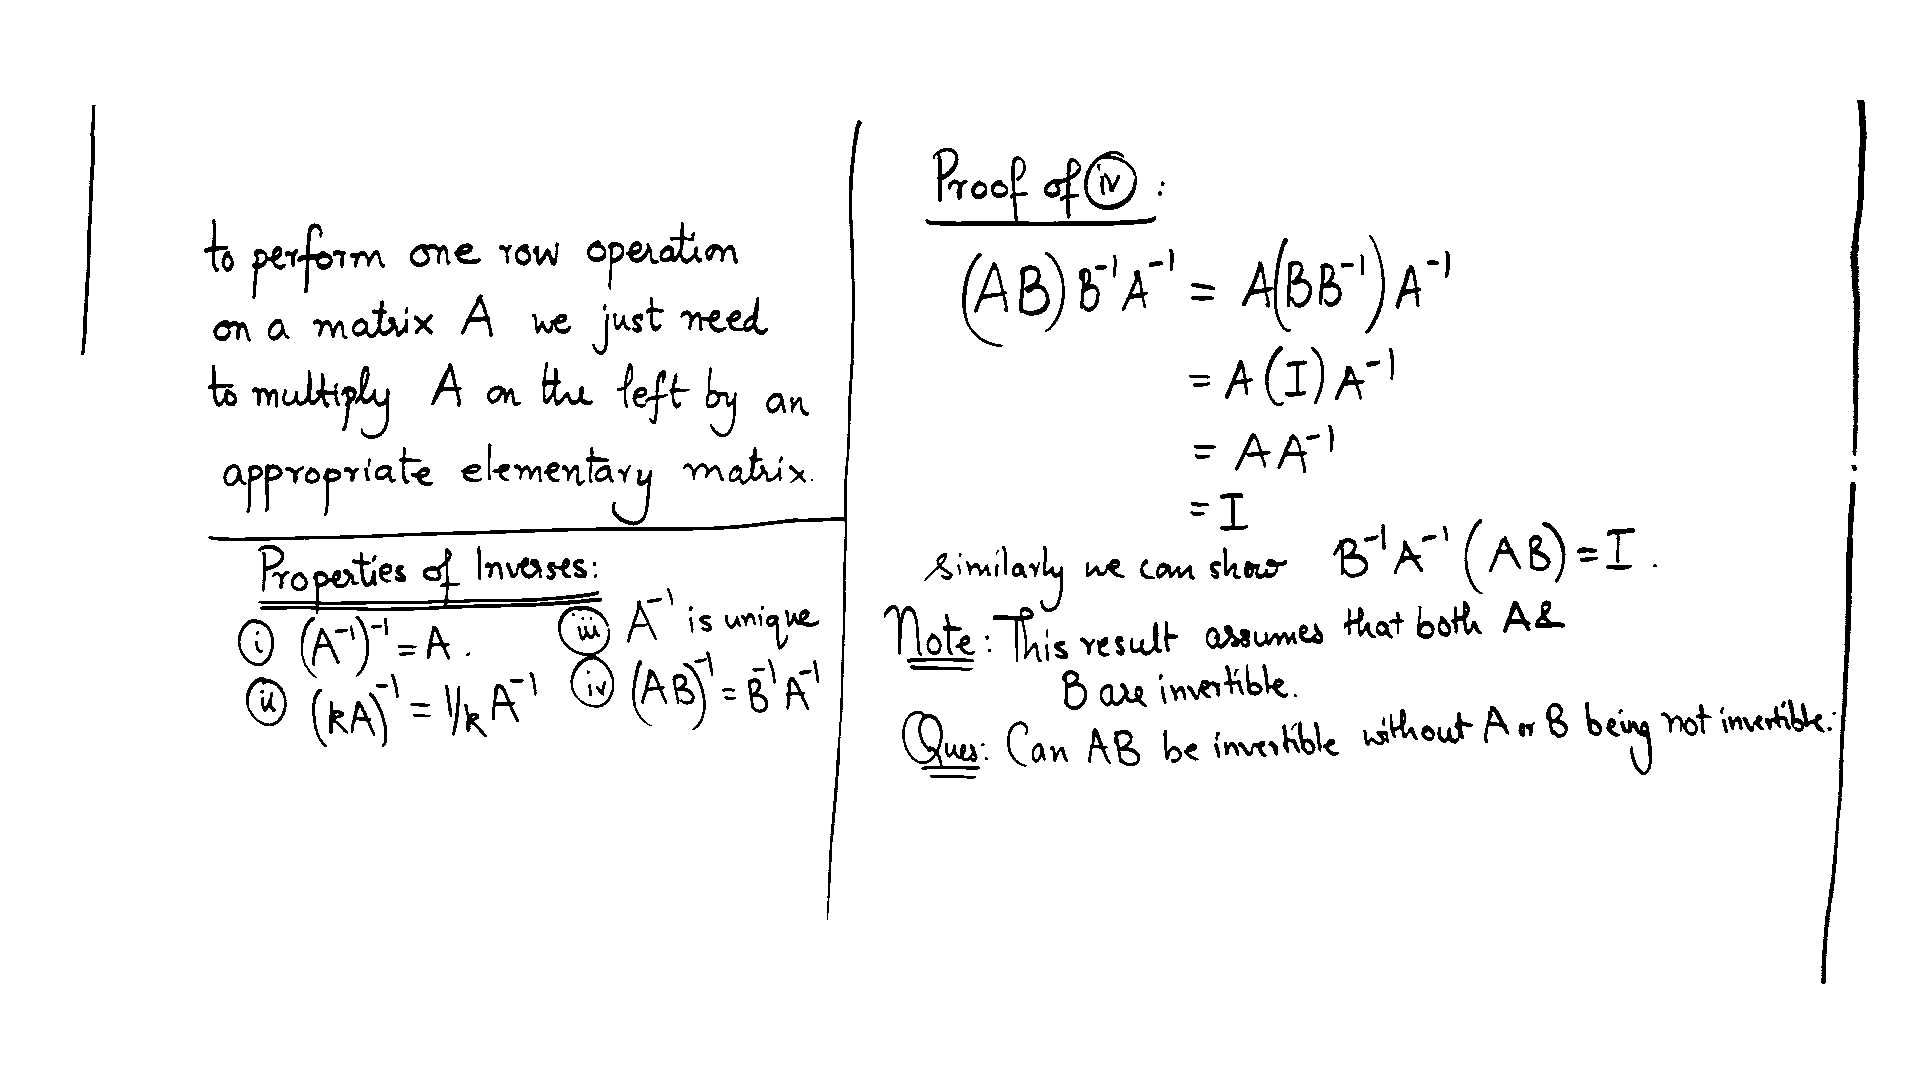 to perform one row operation
on a matrix A we just need
to multiply A on the left by an
appropriate elementary matrix.
Properties of Inverses:
(i) (A⁻¹)⁻¹ = A.
(ii) (kA)⁻¹ = 1/k A⁻¹
(iii) A⁻¹ is unique
(iv) (AB)⁻¹ = B⁻¹A⁻¹
Proof of (iv):
(AB) B⁻¹A⁻¹ = A(BB⁻¹) A⁻¹
= A (I) A⁻¹
= A A⁻¹
= I
similarly we can show B⁻¹A⁻¹ (AB) = I.
Note: This result assumes that both A &
B are invertible.
Ques: Can AB be invertible without A or B being not invertible.